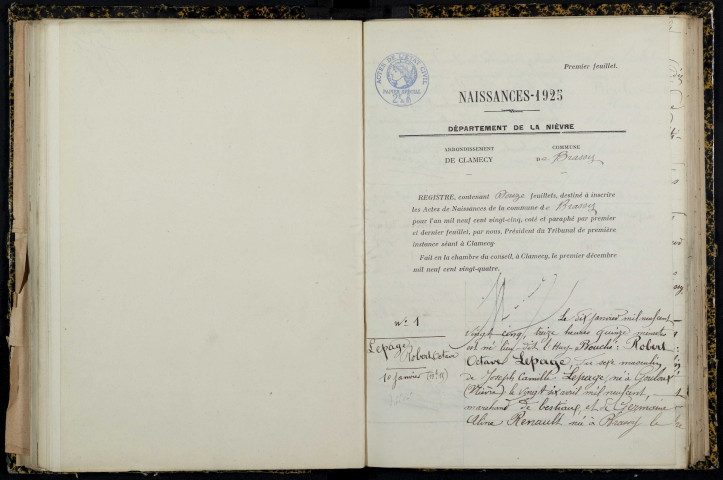 Premier feuillet.
ACTES DE L'ÉTAT CIVIL
PAPIER SPÉCIAL
NAISSANCES-1925
DÉPARTEMENT DE LA NIÈVRE
ARRONDISSEMENT
DE CLAMECY
COMMUNE
de Brassy
REGISTRE, contenant Douze feuillets, destiné à inscrire
les Actes de Naissances de la commune de Brassy
pour l'an mil neuf cent vingt-cinq, coté et paraphé par premier
et dernier feuillet, par nous, Président du Tribunal de première
instance séant à Clamecy.
Fait en la chambre du conseil, à Clamecy, le premier décembre
mil neuf cent vingt-quatre.
N° 1
Lepage
Robert Octave
10 Janvier
Le dix janvier mil neuf cent
vingt cinq, treize heures quinze minutes
est né lieu dit l'Huy Bouché : Robert
Octave Lepage du sexe masculin,
de Joseph Camille Lepage, né à Gouloux
(Nièvre) le vingt six avril mil neuf cent,
marchand de bestiaux, et de Germaine
Aline Renault née à Brassy le